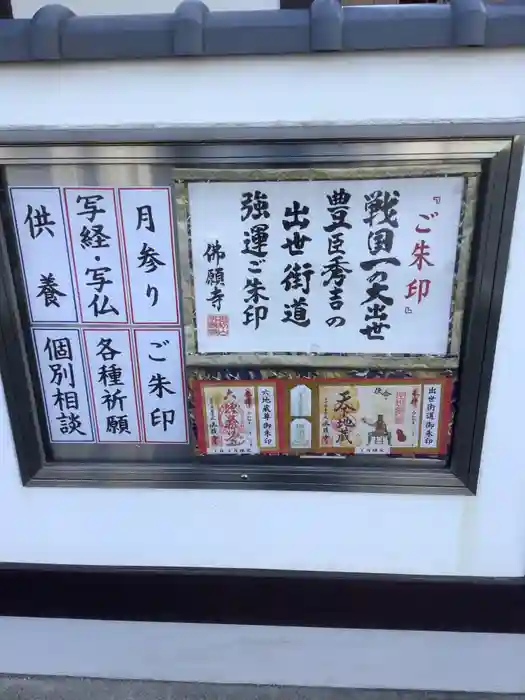 『ご朱印』
戦国一の大出世
豊臣秀吉の
出世街道
強運ご朱印
佛願寺
月参り
写経・写仏
供養
ご朱印
各種祈願
個別相談
出世街道御朱印
六地蔵尊御朱印